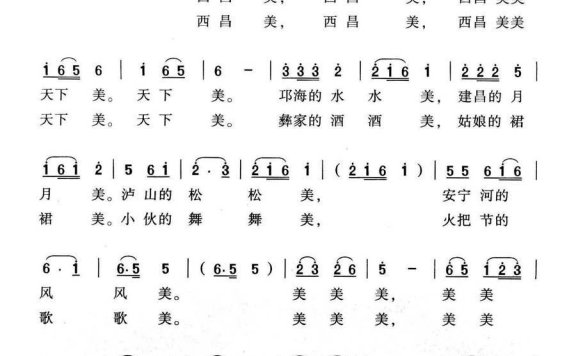 西昌 美， 西昌 美， 西昌 美美
西昌 美， 西昌 美， 西昌 美美
1 6 5 6 | 1 6 5 | 6 － | 3 3 3 2 | 2 1 6 1 | 2 2 2 5 |
天下 美。天下 美。 邛海的 水 水 美，建昌的 月
天下 美。天下 美。 彝家的 酒 酒 美，姑娘的 裙
1 6 1 2 | 5 6 1 | 2 · 3 | 2 1 6 1 | ( 2 1 6 1 ) | 5 5 6 1 6 |
月 美。泸 山的 松 松 美， 安宁 河的
裙 美。小 伙的 舞 舞 美， 火把 节的
6 · 1 | 6·5 5 | ( 6·5 5 ) | 2 3 2 6 | 5 － | 6 5 1 2 3 |
风 风 美。 美 美 美， 美 美
歌 歌 美。 美 美 美， 美 美